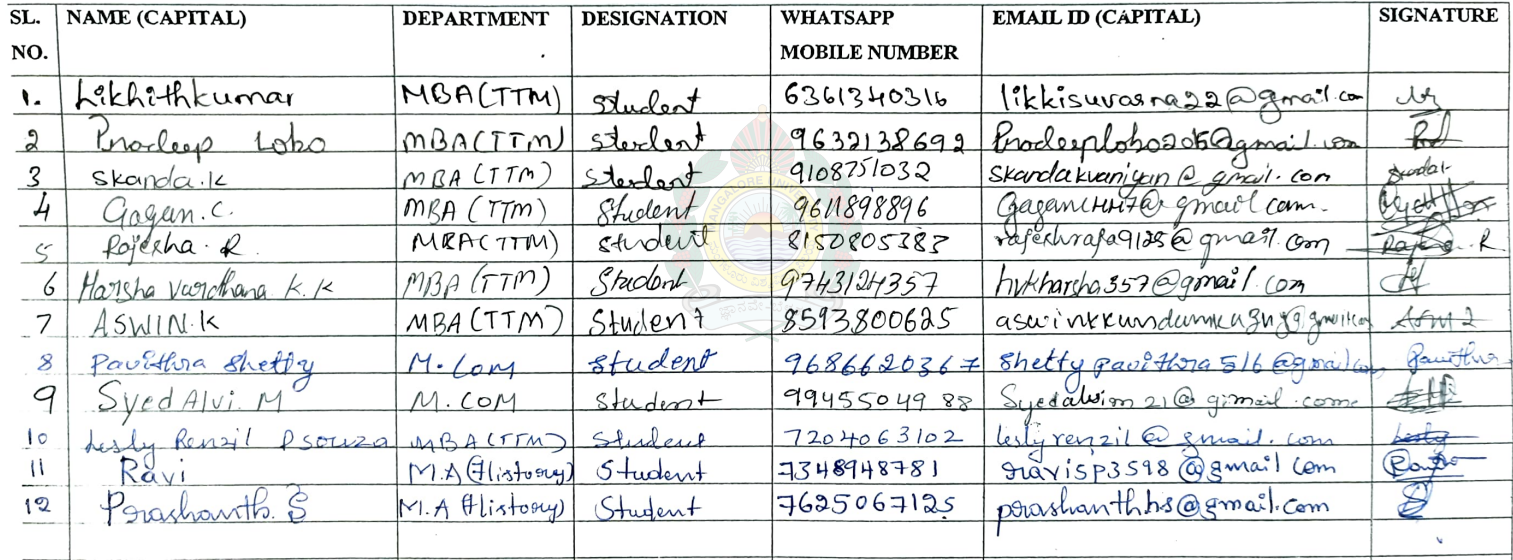 SL. NO. NAME (CAPITAL) DEPARTMENT DESIGNATION WHATSAPP MOBILE NUMBER EMAIL ID (CAPITAL) SIGNATURE
1. Likhithkumar MBA(TTM) Student 6361340316 likkisuvarna22@gmail.com
2 Pradeep Lobo MBA(TTM) Student 9632138692 Pradeeplobo205@gmail.com
3 Skanda.K MBA (TTM) Student 9108751032 skandakvaniyan@gmail.com
4 Gagan.C. MBA (TTM) Student 9611898896
5 Rajesha.R MBA(TTM) Student 8150805383 rajeshraja9125@gmail.com
6 Harsha vardhana K.K MBA (TTM) Student 9743124357 hvkharsha357@gmail.com
7 ASWIN.K MBA (TTM) Student 8593800625
8 Pavithra Shetty M.Com Student 9686620367 Shettypavithra516@gmail.com Pavithra
9 Syed Alvi. M M.COM Student 9945504988 Syedalvim21@gimail.come
10 Lesly Renzil Dsouza MBA (TTM) Student 7204063102 leslyrenzil@gmail.com Lesly
11 Ravi M.A (History) Student 7348948781 ravisp3598@gmail com
12 Prashanth.S M.A (History) Student 7625067125 prashanthhs@gmail.com